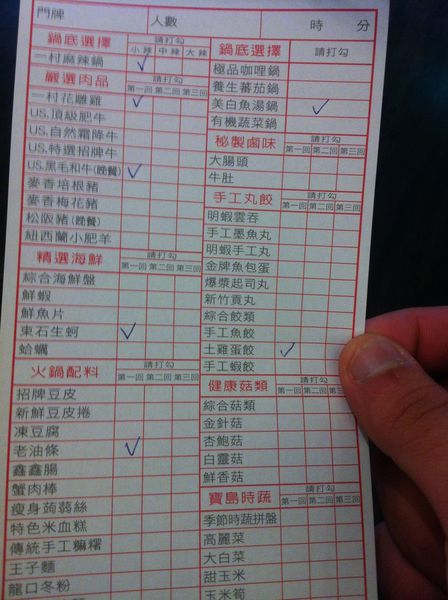 門牌 人數 時 分
鍋底選擇 請打勾
小辣 中辣 大辣
一村麻辣鍋
嚴選肉品 請打勾
第一回 第二回 第三回
一村花雕雞
US.頂級肥牛
US.自然霜降牛
US.特選招牌牛
US.黑毛和牛(晚餐)
麥香培根豬
麥香梅花豬
松阪豬(晚餐)
紐西蘭小肥羊
精選海鮮 請打勾
第一回 第二回 第三回
綜合海鮮盤
鮮蝦
鮮魚片
東石生蚵
蛤蠣
火鍋配料 請打勾
第一回 第二回 第三回
招牌豆皮
新鮮豆皮捲
凍豆腐
老油條
鑫鑫腸
蟹肉棒
瘦身蒟蒻絲
特色米血糕
傳統手工麻糬
王子麵
龍口冬粉
鍋底選擇 請打勾
極品咖哩鍋
養生蕃茄鍋
美白魚湯鍋
有機蔬菜鍋
秘製鹵味 請打勾
第一回 第二回 第三回
大腸頭
牛肚
手工丸餃 請打勾
第一回 第二回 第三回
明蝦雲吞
手工墨魚丸
明蝦手工丸
金牌魚包蛋
爆漿起司丸
新竹貢丸
綜合餃類
手工魚餃
土雞蛋餃
手工蝦餃
健康菇類 請打勾
第一回 第二回 第三回
綜合菇
金針菇
杏鮑菇
白靈菇
鮮香菇
寶島時蔬 請打勾
第一回 第二回 第三回
季節時蔬拼盤
高麗菜
大白菜
甜玉米
玉米筍